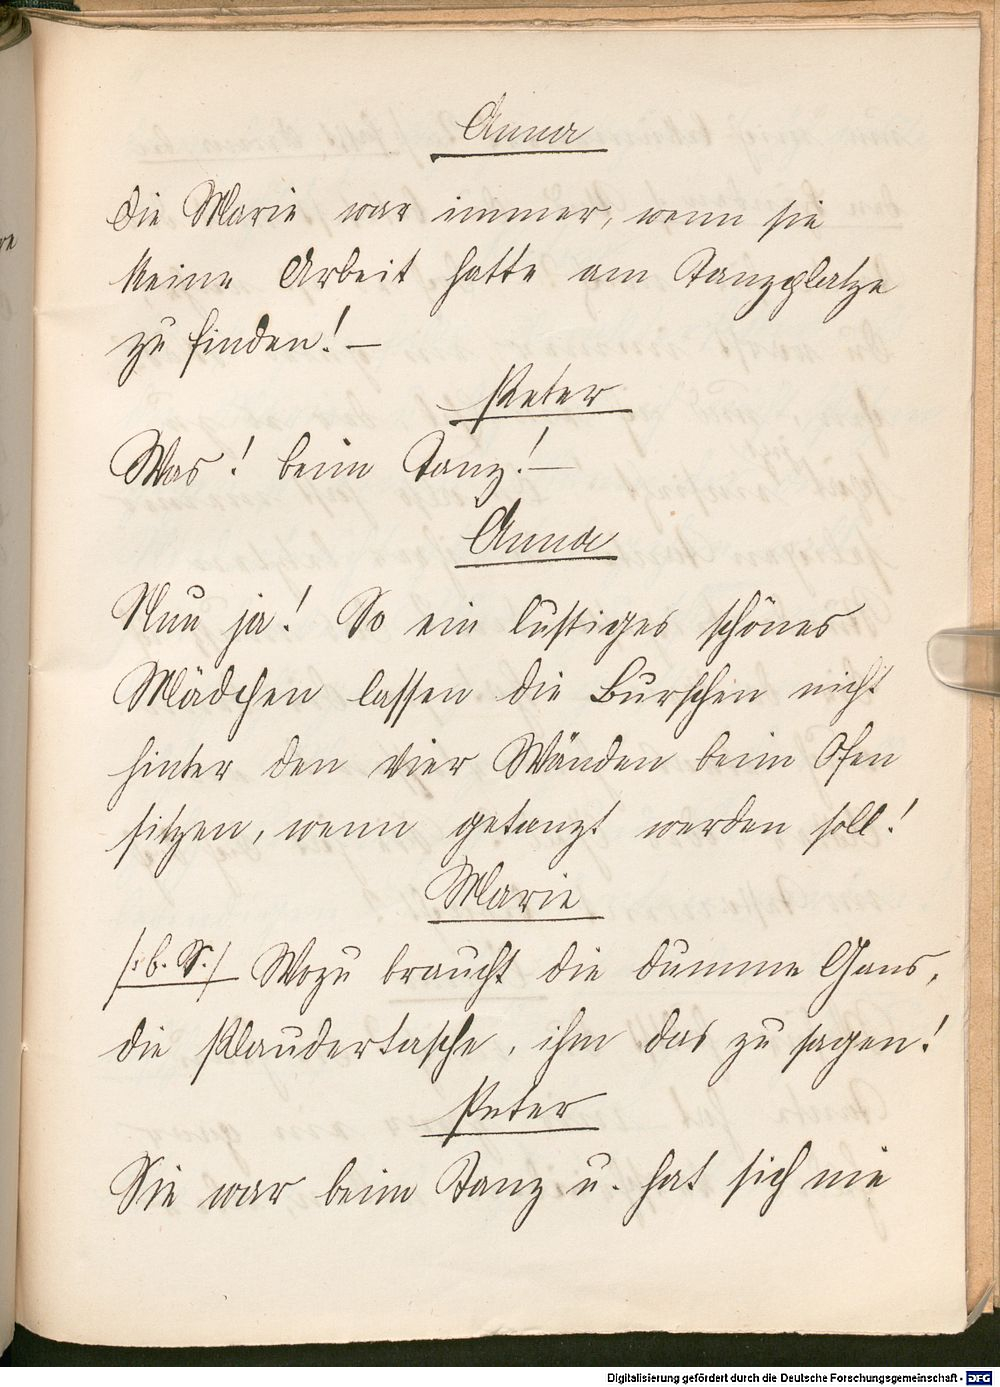 Anna
Die Marie war immer, wenn sie
keine Arbeit hatte am Tanzplatze
zu finden! —
Peter
Was! beim Tanz! —
Anna
Nun ja! So ein lustiges schönes
Mädchen lassen die Burschen nicht
hinter den vier Wänden beim Ofen
sitzen, wenn getanzt werden soll!
Marie
/: b. S. :/ Wozu braucht die dumme Gans,
die Plaudertasche, ihm das zu sagen!
Peter
Sie war beim Tanz u. hat sich nie
Digitalisierung gefördert durch die Deutsche Forschungsgemeinschaft - DFG